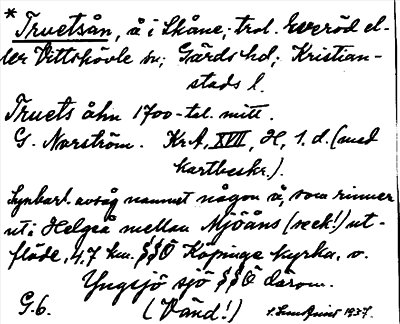 * Truetsån, å i Skåne; trol. Everöd el-
ler Vittskövle sn; Gärds hd; Kristian-
stads l.
Truets åhn 1700-tal. mitt.
G. Norström. KrA, XVII, H, 1.d. (med
kartbeskr.).
Synbarl. avsåg namnet någon å, som rinner
ut i Helgeå mellan Mjöåns (seek!) ut-
flöde, 4,7 km. §§Ö Köpinge kyrka, o.
Yngsjö sjö §§Ö därom.
G.6. (Vänd!) 1937.